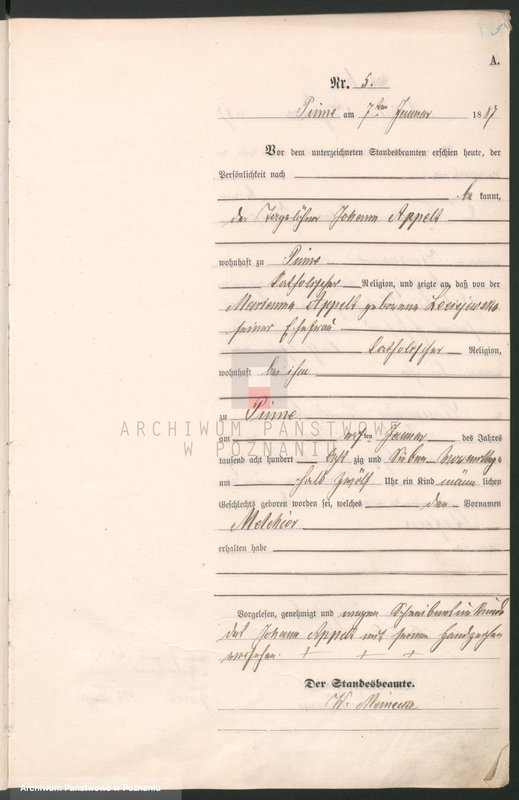 A.
Nr. 5.
Pinne am 7ten Januar 1887
Vor dem unterzeichneten Standesbeamten erschien heute, der
Persönlichkeit nach
be kannt,
der Tagelöhner Johann Appelt
wohnhaft zu Pinne
katholischer Religion, und zeigte an, daß von der
Marianna Appelt geborene
seiner Ehefrau
katholischer Religion,
wohnhaft bei ihm
zu Pinne
ARCHIWUM PAŃSTWOWE
W POZNANIU
am ersten Januar des Jahres
tausend acht hundert acht zig und Sieben Vormittags
um halb zwölf Uhr ein Kind männ lichen
Geschlechts geboren worden sei, welches den Vornamen
Melchior
erhalten habe
Vorgelesen, genehmigt und wegen
des Johann Appelt mit seinem Handzeichen
versehen. + + +
Der Standesbeamte.
W. Meinecke
Archiwum Państwowe w Poznaniu